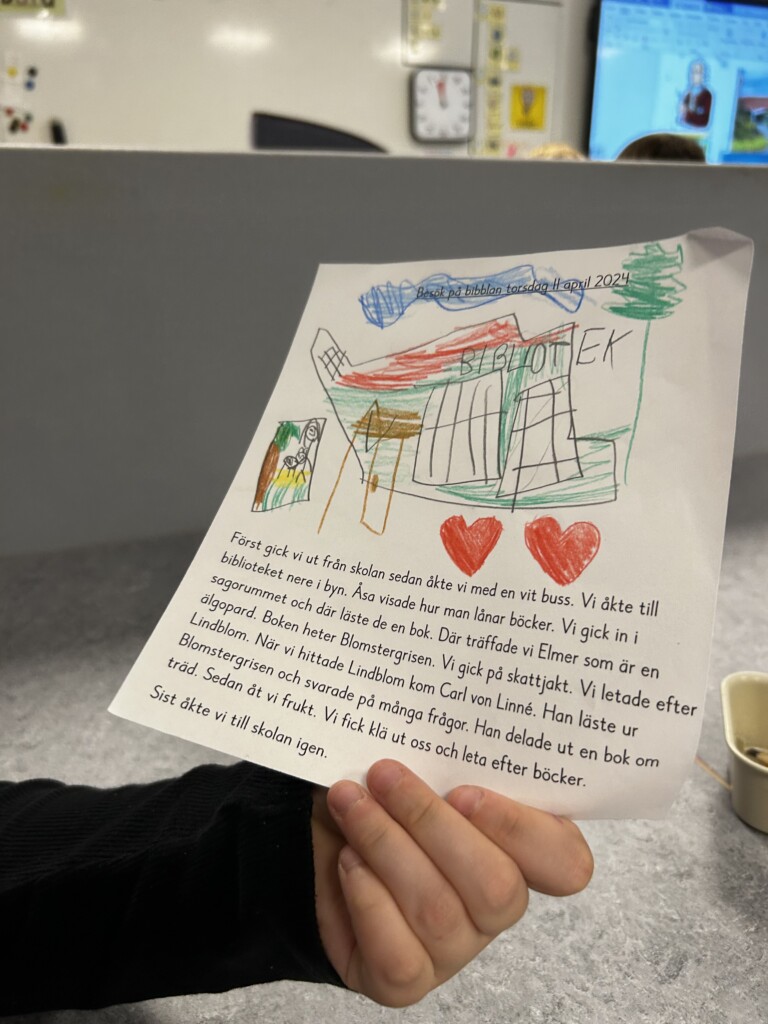 Besök på bibblan torsdag 11 april 2024
BIBLIOTEK
Först gick vi ut från skolan sedan åkte vi med en vit buss. Vi åkte till
biblioteket nere i byn. Åsa visade hur man lånar böcker. Vi gick in i
sagorummet och där läste de en bok. Där träffade vi Elmer som är en
älgopard. Boken heter Blomstergrisen. Vi gick på skattjakt. Vi letade efter
Lindblom. När vi hittade Lindblom kom Carl von Linné. Han läste ur
Blomstergrisen och svarade på många frågor. Han delade ut en bok om
träd. Sedan åt vi frukt. Vi fick klä ut oss och leta efter böcker.
Sist åkte vi till skolan igen.